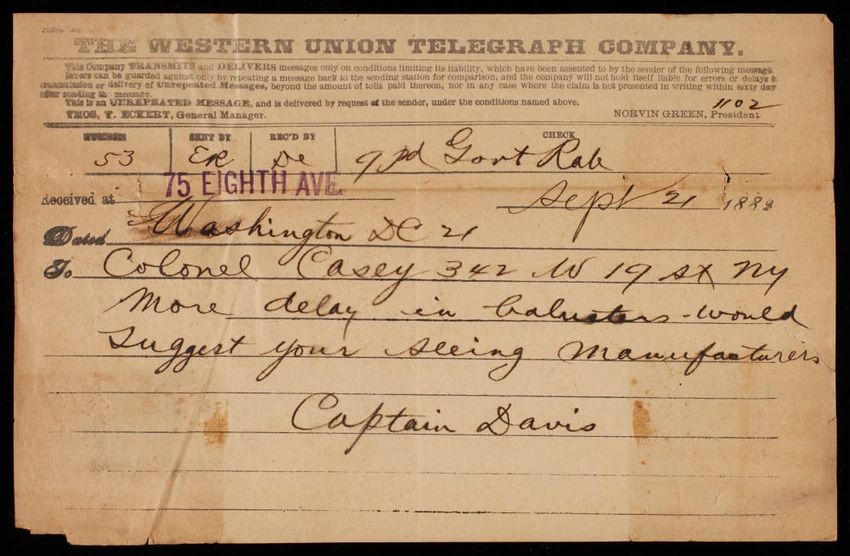 THE WESTERN UNION TELEGRAPH COMPANY.
This Company TRANSMITS and DELIVERS messages only on conditions limiting its liability, which have been assented to by the sender of the following message.
Errors can be guarded against only by repeating a message back to the sending station for comparison, and the company will not hold itself liable for errors or delays in
transmission or delivery of Unrepeated Messages, beyond the amount of tolls paid thereon, nor in any case where the claim is not presented in writing within sixty days
after sending the message.
This is an UNREPEATED MESSAGE, and is delivered by request of the sender, under the conditions named above.
1102
THOS. T. ECKERT, General Manager. NORVIN GREEN, President.
NUMBER SENT BY REC'D BY CHECK
53 ER De 9 Pd Govt Rate
75 EIGHTH AVE.
Received at Sept 21 1883
Dated Washington DC 21
To Colonel Casey 342 W 19 st Ny
More delay in balusters - would
Suggest your seeing manufacturers
Captain Davis